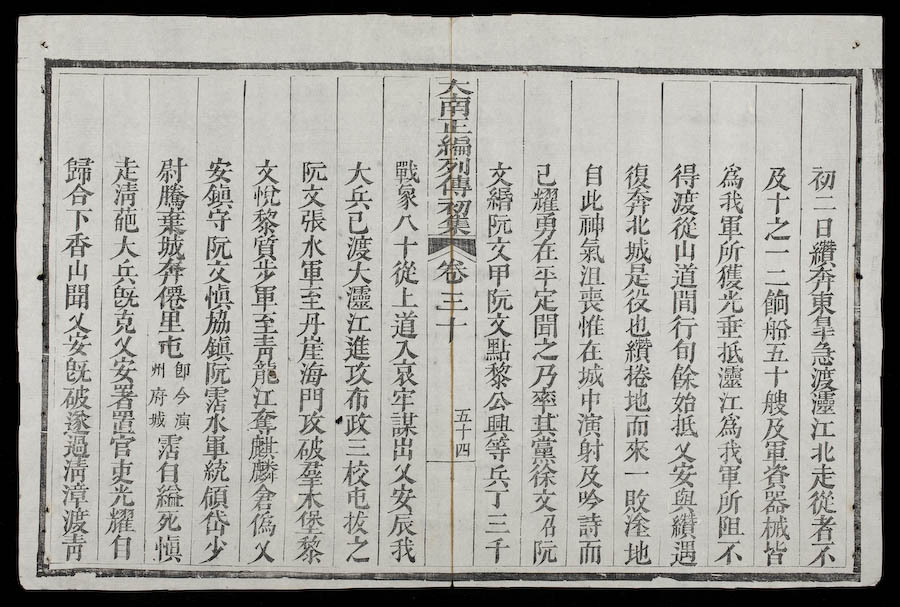 初二日纘奔東臯急渡𤅷江北走從者不
及十之一二餉船五十艘及軍資器械皆
爲我軍所獲光垂抵𤅷江爲我軍所阻不
得渡從山道間行旬餘始抵乂安與纘遇
復奔北城是役也纘捲地而來一敗塗地
自此神氣沮喪惟在城中演射及吟詩而
已耀勇在平定聞之乃率其黨徐文炤阮
文縉阮文甲阮文點黎公興等兵丁三千
大南正編列傳初集 卷三十 五十四
戰象八十從上道入哀牢謀出乂安辰我
大兵已渡大𤅷江進攻布政三校屯拔之
阮文張水軍至丹崖海門攻破羣木堡黎
文悅黎質步軍至青龍江奪麒麟倉僞乂
安鎮守阮文慎協鎮阮霑水軍統領岱少
尉騰棄城奔僊里屯卽今演州府城霑自縊死慎
走淸葩大兵旣克乂安署置官吏光耀自
歸合下香山聞乂安旣破遂過淸漳渡靑